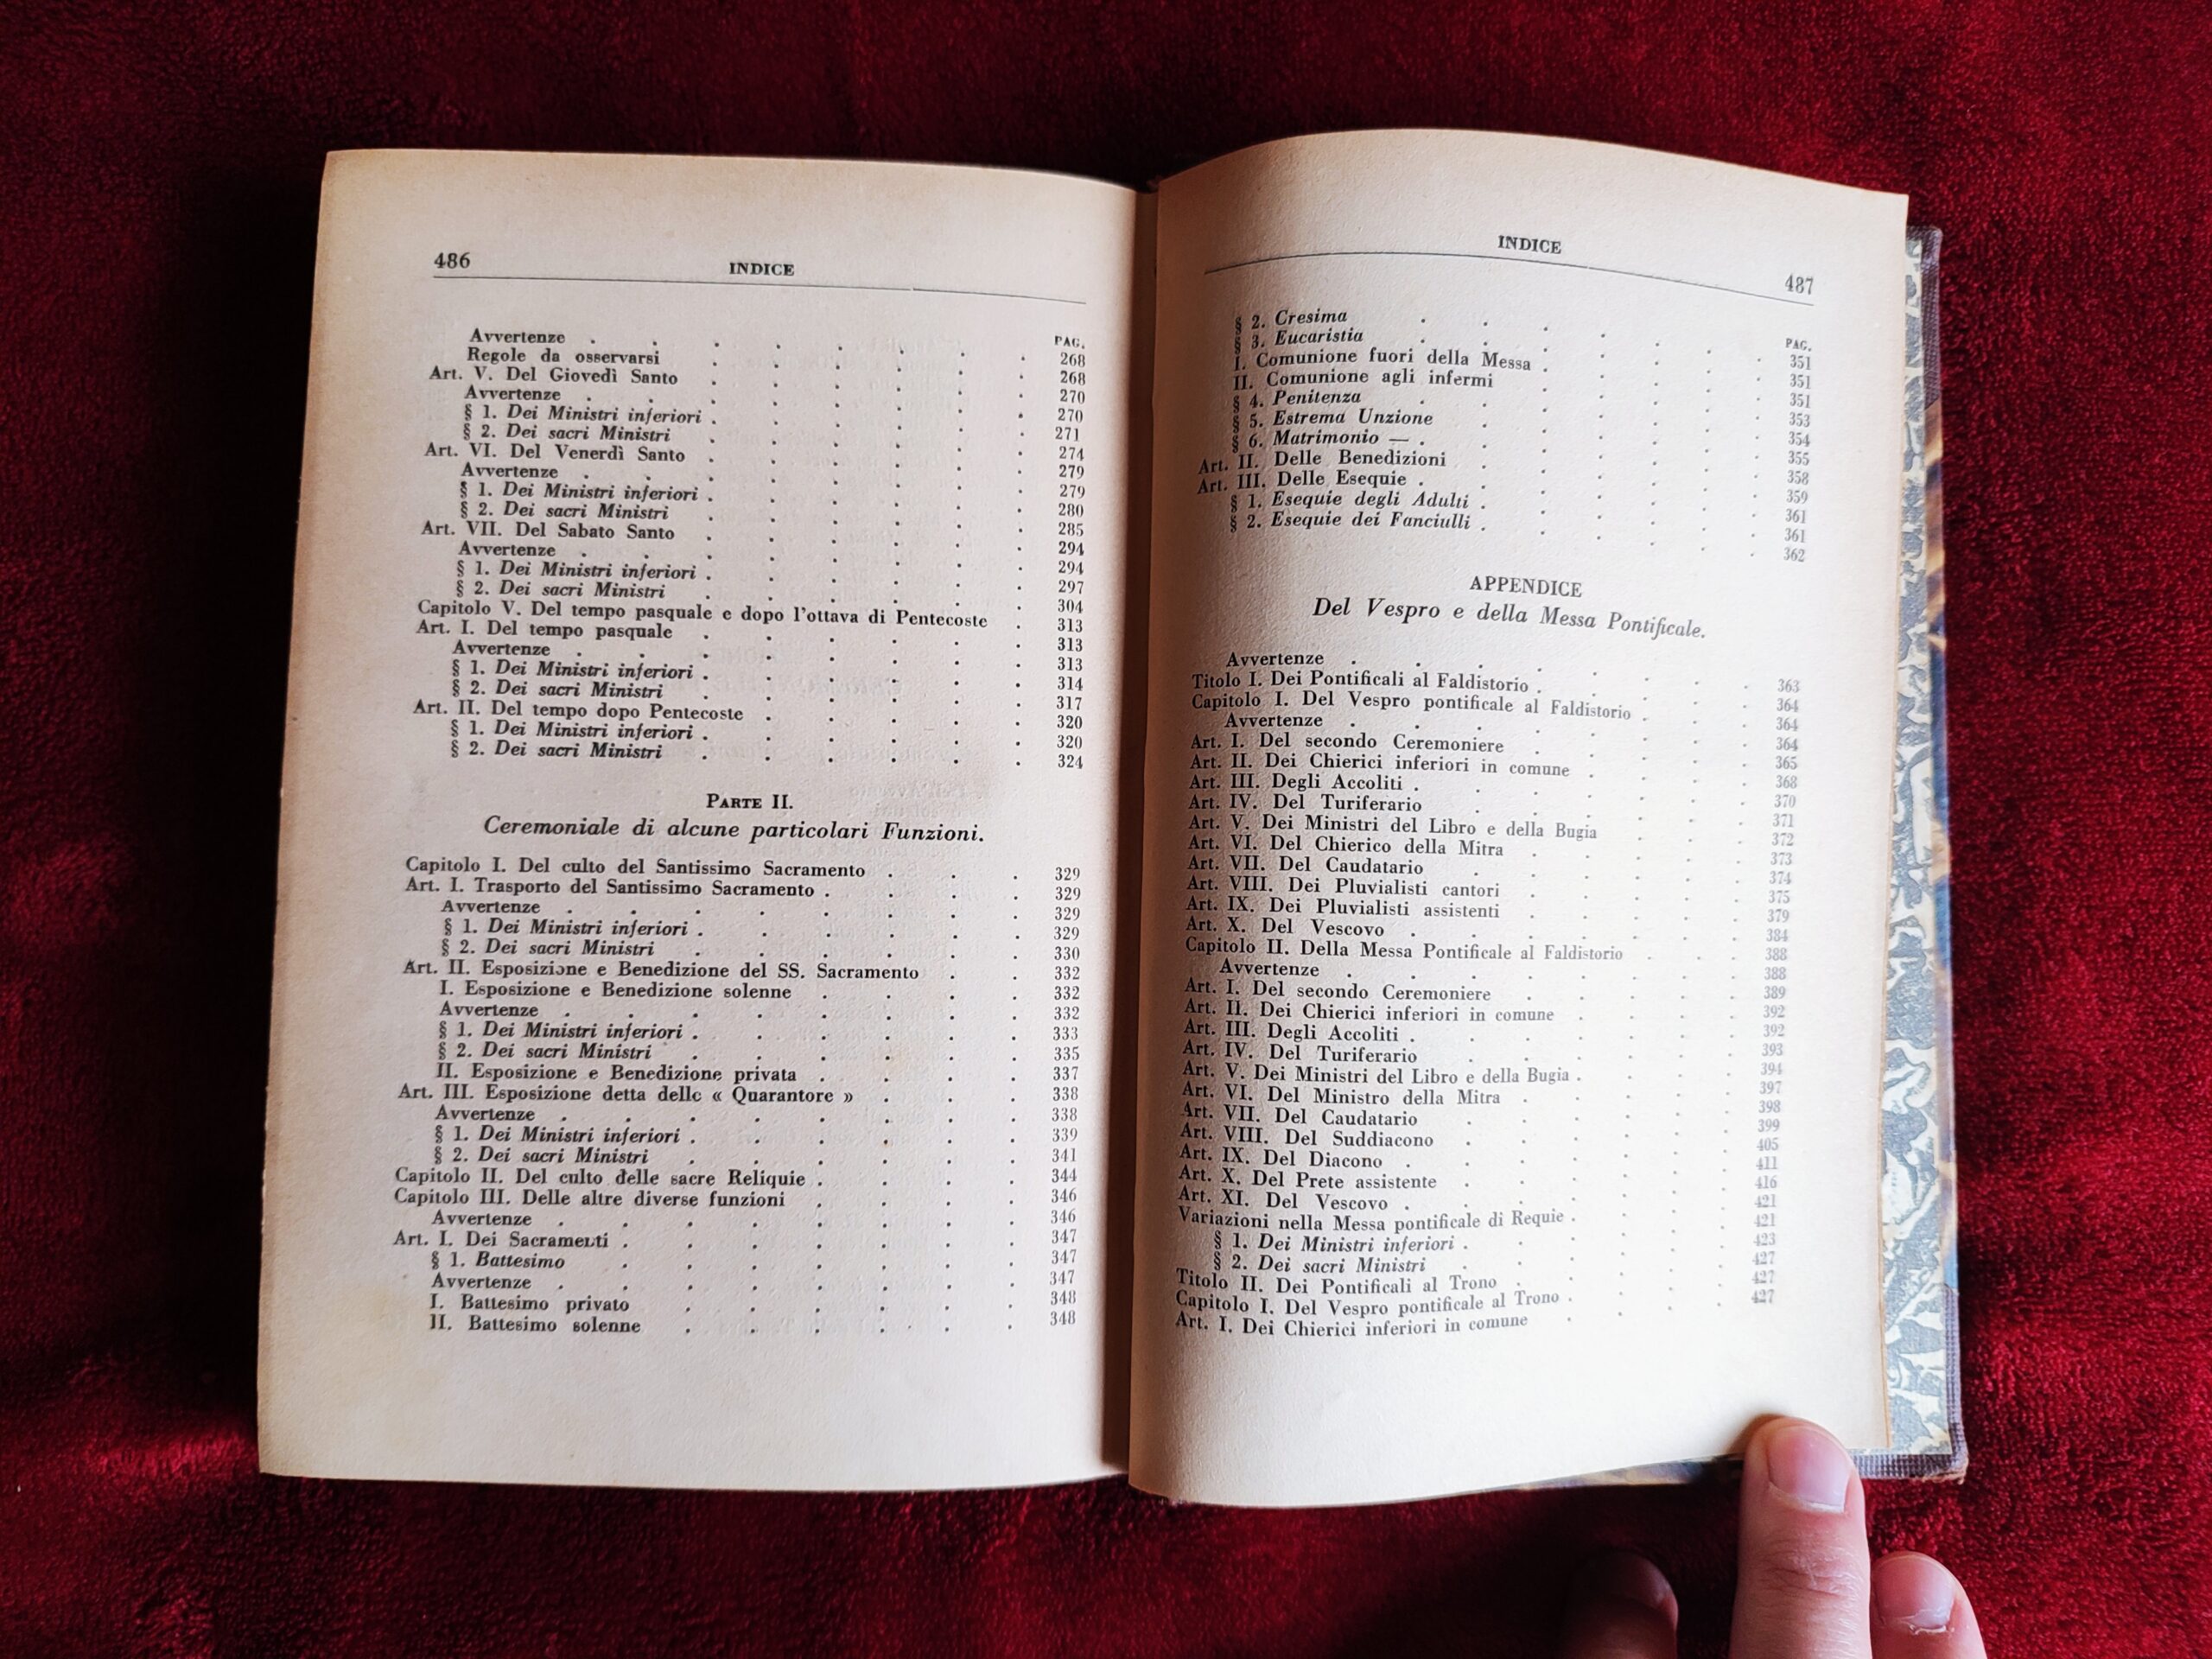 486 INDICE
PAG.
Avvertenze . . . . . . . . 268
Regole da osservarsi . . . . . . 268
Art. V. Del Giovedì Santo . . . . . . 270
Avvertenze . . . . . . . . 270
§ 1. Dei Ministri inferiori . . . . . . 271
§ 2. Dei sacri Ministri . . . . . . 274
Art. VI. Del Venerdì Santo . . . . . . 279
Avvertenze . . . . . . . . 279
§ 1. Dei Ministri inferiori . . . . . . 280
§ 2. Dei sacri Ministri . . . . . . 285
Art. VII. Del Sabato Santo . . . . . . 294
Avvertenze . . . . . . . . 294
§ 1. Dei Ministri inferiori . . . . . . 297
§ 2. Dei sacri Ministri . . . . . . 304
Capitolo V. Del tempo pasquale e dopo l'ottava di Pentecoste . 313
Art. I. Del tempo pasquale . . . . . . 313
Avvertenze . . . . . . . . 313
§ 1. Dei Ministri inferiori . . . . . . 314
§ 2. Dei sacri Ministri . . . . . . 317
Art. II. Del tempo dopo Pentecoste . . . . . 320
§ 1. Dei Ministri inferiori . . . . . . 320
§ 2. Dei sacri Ministri . . . . . . 324
PARTE II.
Ceremoniale di alcune particolari Funzioni.
Capitolo I. Del culto del Santissimo Sacramento . . . 329
Art. I. Trasporto del Santissimo Sacramento . . . . 329
Avvertenze . . . . . . . . 329
§ 1. Dei Ministri inferiori . . . . . . 329
§ 2. Dei sacri Ministri . . . . . . 330
Art. II. Esposizione e Benedizione del SS. Sacramento . . 332
I. Esposizione e Benedizione solenne . . . . 332
Avvertenze . . . . . . . . 332
§ 1. Dei Ministri inferiori . . . . . . 333
§ 2. Dei sacri Ministri . . . . . . 335
II. Esposizione e Benedizione privata . . . . 337
Art. III. Esposizione detta delle « Quarantore » . . . 338
Avvertenze . . . . . . . . 338
§ 1. Dei Ministri inferiori . . . . . . 339
§ 2. Dei sacri Ministri . . . . . . 341
Capitolo II. Del culto delle sacre Reliquie . . . . 344
Capitolo III. Delle altre diverse funzioni . . . . 346
Avvertenze . . . . . . . . 346
Art. I. Dei Sacramenti . . . . . . . 347
§ 1. Battesimo . . . . . . . 347
Avvertenze . . . . . . . . 347
I. Battesimo privato . . . . . . 348
II. Battesimo solenne . . . . . . 348
INDICE 487
PAG.
§ 2. Cresima . . . . . . 351
§ 3. Eucaristia . . . . . . 351
I. Comunione fuori della Messa . . . . . 351
II. Comunione agli infermi . . . . . 353
§ 4. Penitenza . . . . . . 354
§ 5. Estrema Unzione . . . . . 355
§ 6. Matrimonio — . . . . . . 358
Art. II. Delle Benedizioni . . . . . 359
Art. III. Delle Esequie . . . . . . 361
§ 1. Esequie degli Adulti . . . . . 361
§ 2. Esequie dei Fanciulli . . . . . 362
APPENDICE
Del Vespro e della Messa Pontificale.
Avvertenze . . . . . . . 363
Titolo I. Dei Pontificali al Faldistorio . . . . 364
Capitolo I. Del Vespro pontificale al Faldistorio . . 364
Avvertenze . . . . . . . 364
Art. I. Del secondo Ceremoniere . . . . 365
Art. II. Dei Chierici inferiori in comune . . . 368
Art. III. Degli Accoliti . . . . . . 370
Art. IV. Del Turiferario . . . . . 371
Art. V. Dei Ministri del Libro e della Bugia . . 372
Art. VI. Del Chierico della Mitra . . . . 373
Art. VII. Del Caudatario . . . . . 374
Art. VIII. Dei Pluvialisti cantori . . . . 375
Art. IX. Dei Pluvialisti assistenti . . . . 379
Art. X. Del Vescovo . . . . . . 384
Capitolo II. Della Messa Pontificale al Faldistorio . . 388
Avvertenze . . . . . . . 388
Art. I. Del secondo Ceremoniere . . . . 389
Art. II. Dei Chierici inferiori in comune . . . 392
Art. III. Degli Accoliti . . . . . . 392
Art. IV. Del Turiferario . . . . . 393
Art. V. Dei Ministri del Libro e della Bugia . . . 394
Art. VI. Del Ministro della Mitra . . . . 397
Art. VII. Del Caudatario . . . . . 398
Art. VIII. Del Suddiacono . . . . . 399
Art. IX. Del Diacono . . . . . . 405
Art. X. Del Prete assistente . . . . . 411
Art. XI. Del Vescovo . . . . . . 416
Variazioni nella Messa pontificale di Requie . . . 421
§ 1. Dei Ministri inferiori . . . . . 421
§ 2. Dei sacri Ministri . . . . . 423
Titolo II. Dei Pontificali al Trono . . . . 427
Capitolo I. Del Vespro pontificale al Trono . . . 427
Art. I. Dei Chierici inferiori in comune . . . 427